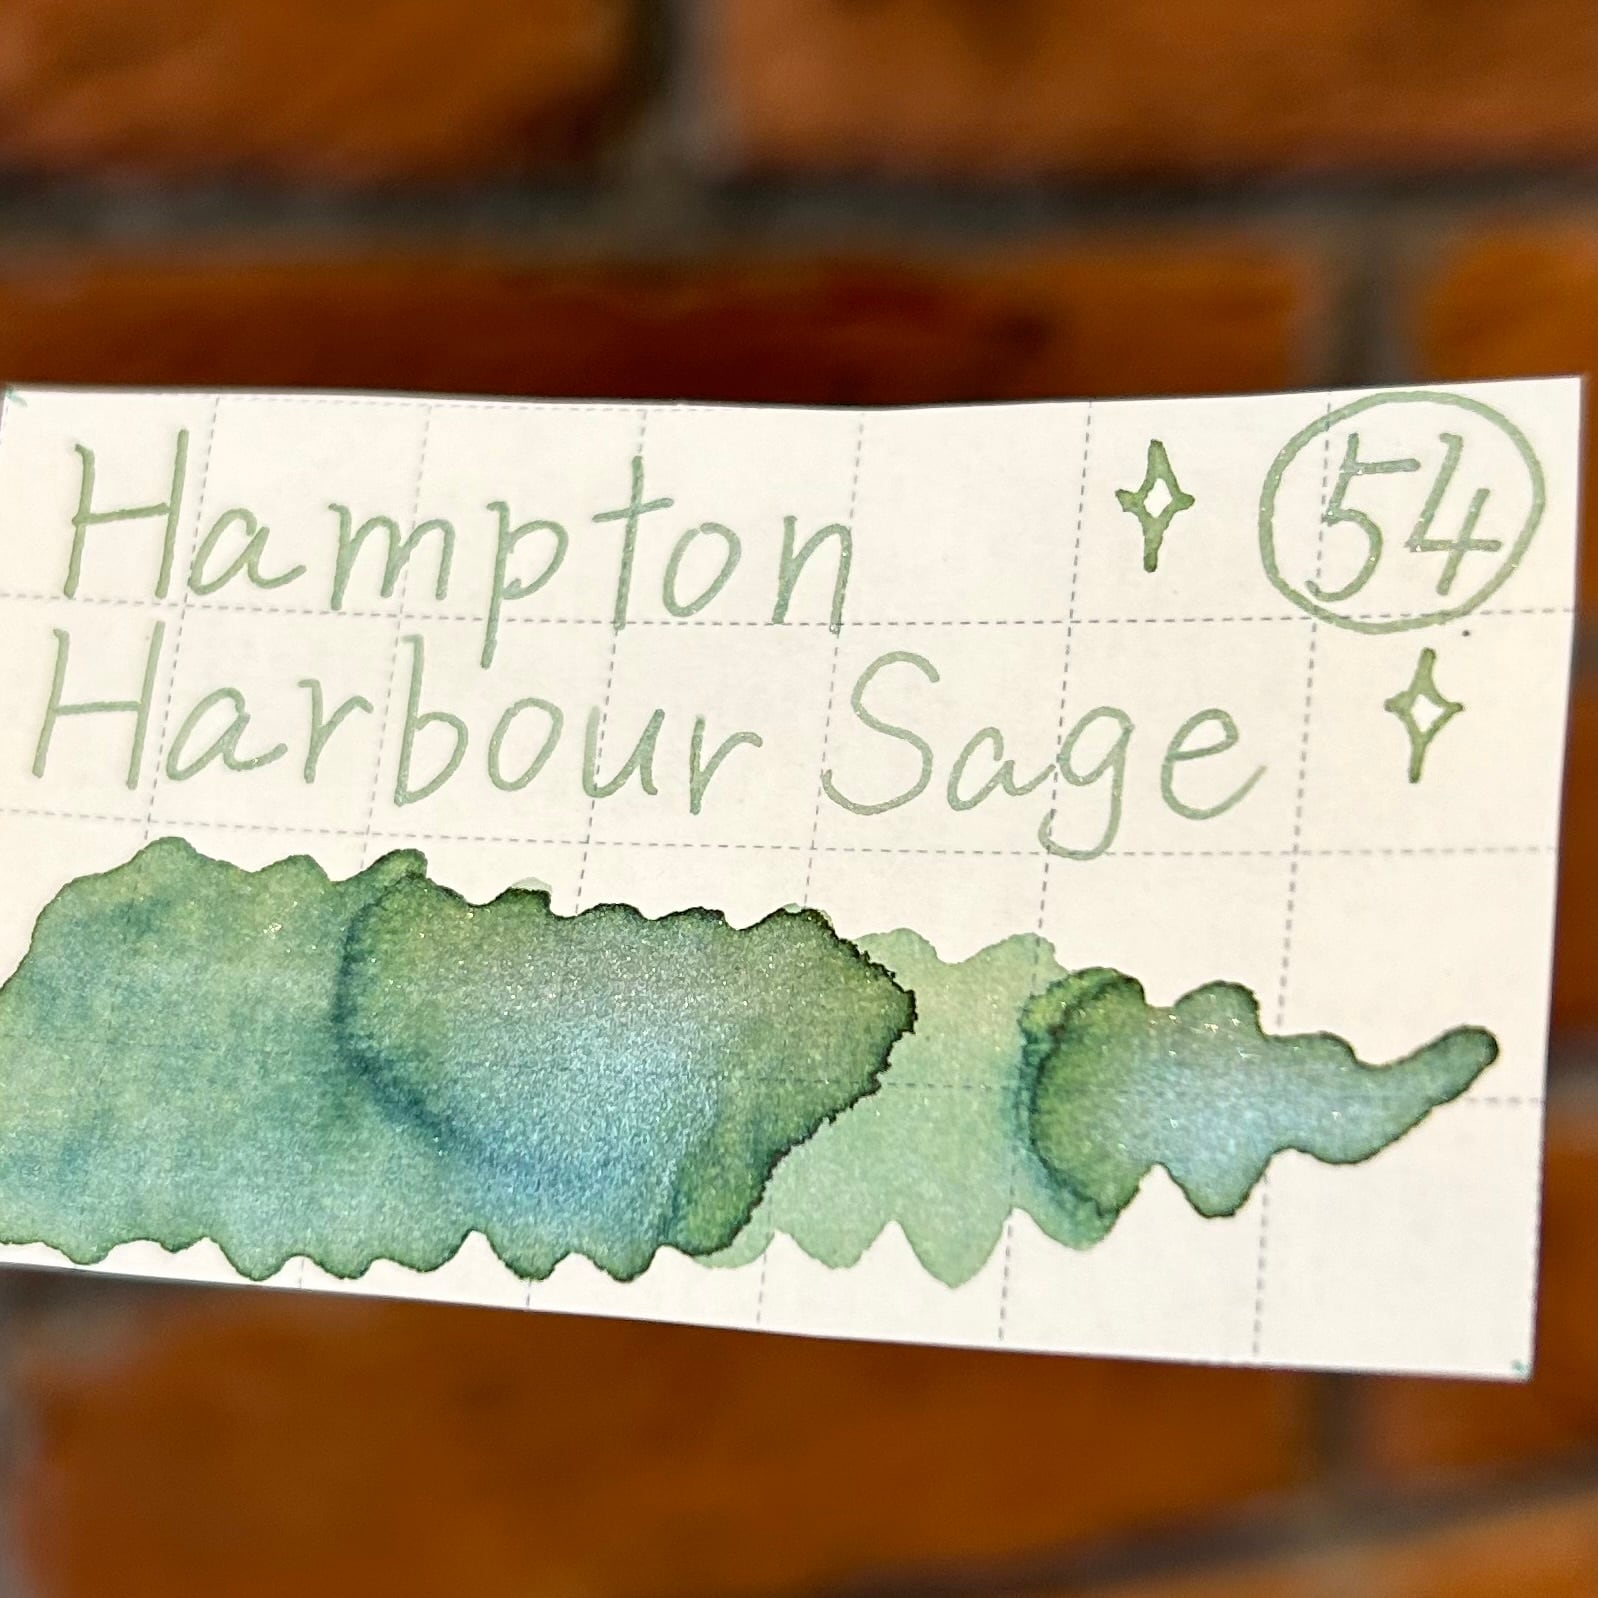 Hampton 54
Harbour Sage